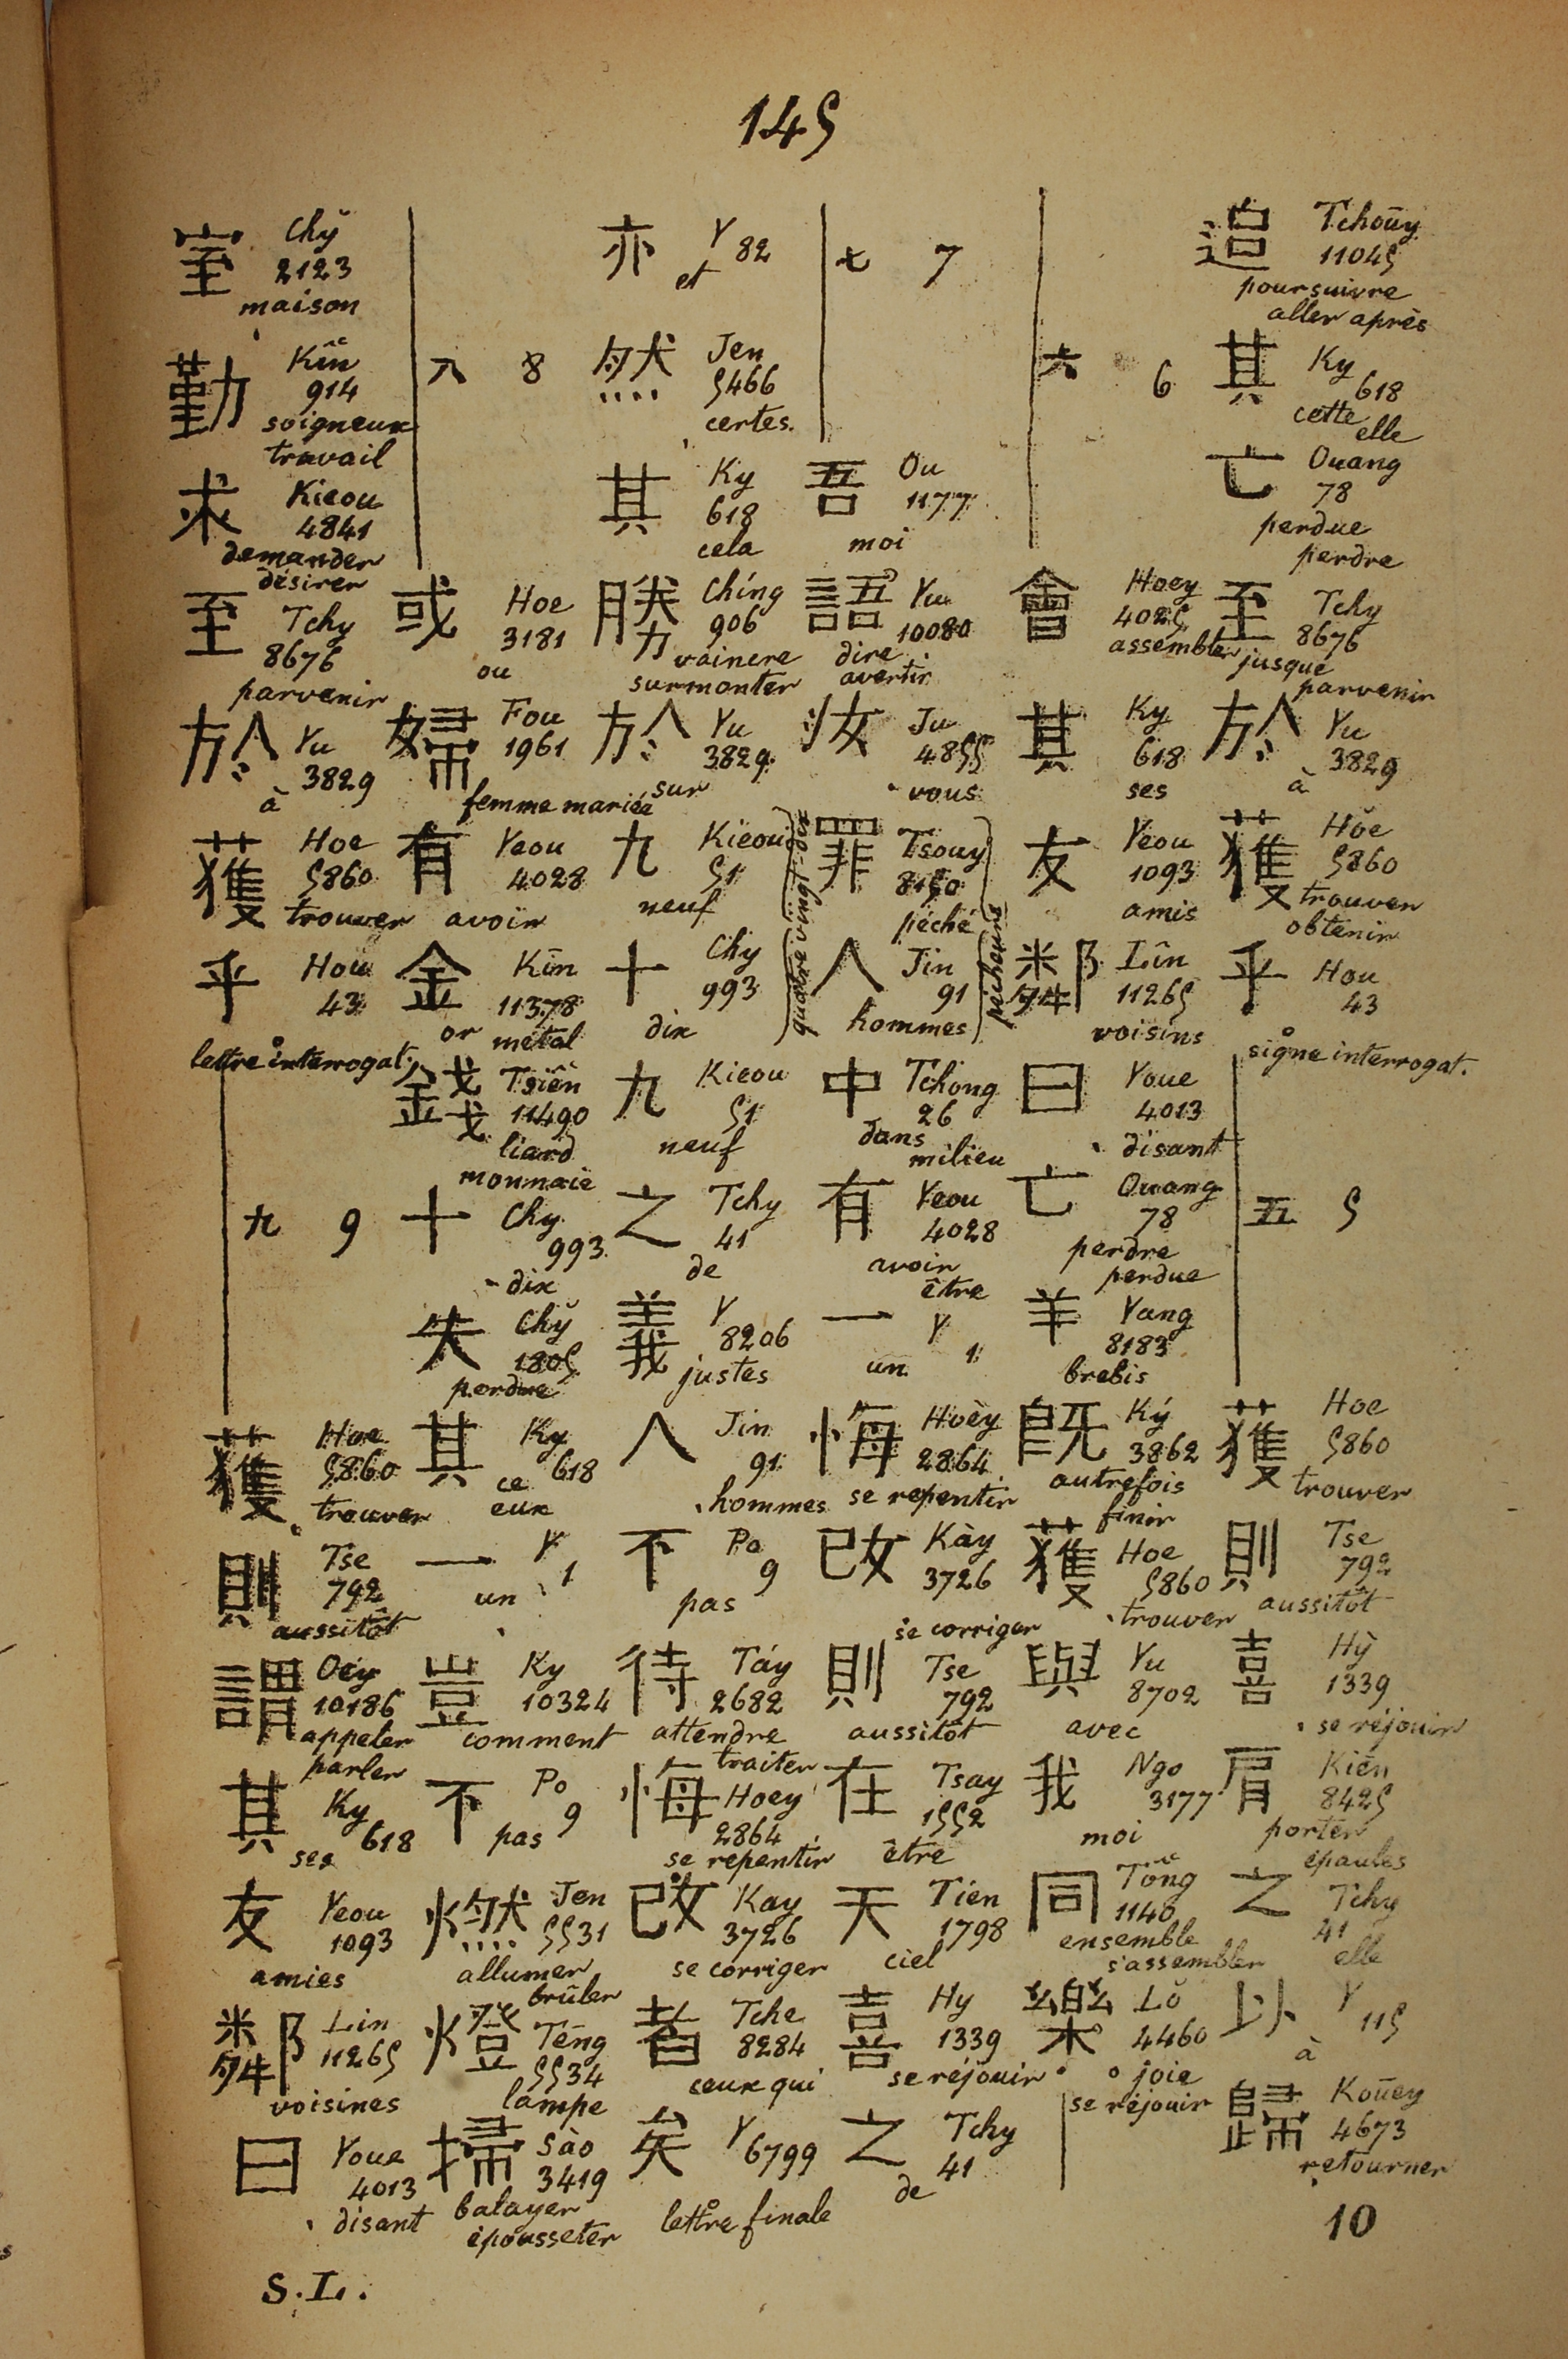 145
追 Tchoūy
11045
poursuivre
aller après
其 Ky
618
cette
elle
亡 Ouang
78
perdue
perdre
至 Tchy
8676
jusque
parvenir
於 Yu
3829
à
獲 Hŏe
5860
trouver
obtenir
乎 Hou
43
signe interrogat.
五 5
獲 Hoe
5860
trouver
則 Tse
792
aussitôt
喜 Hỳ
1339
se réjouir
肩 Kiēn
8425
porter
épaules
之 Tchy
41
elle
以 Y
115
à
歸 Koūey
4673
retourner
六 6
會 Hoey
4025
assembler
其 Ky
618
ses
友 Yeou
1093
amis
鄰 Lîn
11265
voisins
曰 Youe
4013
disant
亡 Ouang
78
perdre
perdue
羊 Yang
8183
brebis
既 Ký
3862
autrefois
finir
獲 Hoe
5860
trouver
與 Yu
8702
avec
我 Ngo
3177
moi
同 Tông
1140
ensemble
s'assembler
樂 Lŏ
4460
joie
se réjouir
七 7
吾 Ou
1177
moi
語 Yu
10080
dire
avertir
汝 Ju
4855
vous
罪 Tsouy
8150
péché
人 Jin
91
hommes
pécheurs
中 Tchong
26
dans
milieu
有 Yeou
4028
avoir
être
一 Y
1
un
悔 Hoèy
2864
se repentir
改 Kày
3726
se corriger
則 Tse
792
aussitôt
在 Tsay
1552
être
天 Tien
1798
ciel
喜 Hy
1339
se réjouir
之 Tchy
41
de
亦 Y 82
et
然 Jen
5466
certes.
其 Ky
618
cela
勝 Chíng
906
vaincre
surmonter
於 Yu
3829
sur
九 Kieou
51
neuf
十 Chy
993
dix
quatre vingt-dix
九 Kieou
51
neuf
之 Tchy
41
de
義 Y
8206
justes
人 Jin
91
hommes
不 Po
9
pas
待 Táy
2682
attendre
traiter
悔 Hoey
2864
se repentir
改 Kay
3726
se corriger
者 Tche
8284
ceux qui
矣 Y
6799
lettre finale
八 8
或 Hoe
3181
ou
婦 Fou
1961
femme mariée
有 Yeou
4028
avoir
金 Kīn
11378
or métal
錢 Tsiên
11490
liard
monnaie
十 Chy
993
dix
失 Chy
1805
perdue
其 Ky
618
ce
eux
一 Y
1
un
豈 Ky
10324
comment
不 Po
9
pas
燃 Jen
5531
allumer
brûler
燈 Tēng
5534
lampe
掃 Sào
3419
balayer
épousseter
室 Chy
2123
maison
勤 Kîn
914
soigneux
travail
求 Kieou
4841
demander
désirer
至 Tchy
8676
parvenir
於 Yu
3829
à
獲 Hoe
5860
trouver
乎 Hou
43
lettre interrogat.
九 9
獲 Hoe
5860
trouver
則 Tse
792
aussitôt
謂 Oéy
10186
appeler
parler
其 Ky
618
ses
友 Yeou
1093
amies
鄰 Lin
11265
voisines
曰 Youe
4013
disant
10
S.L.